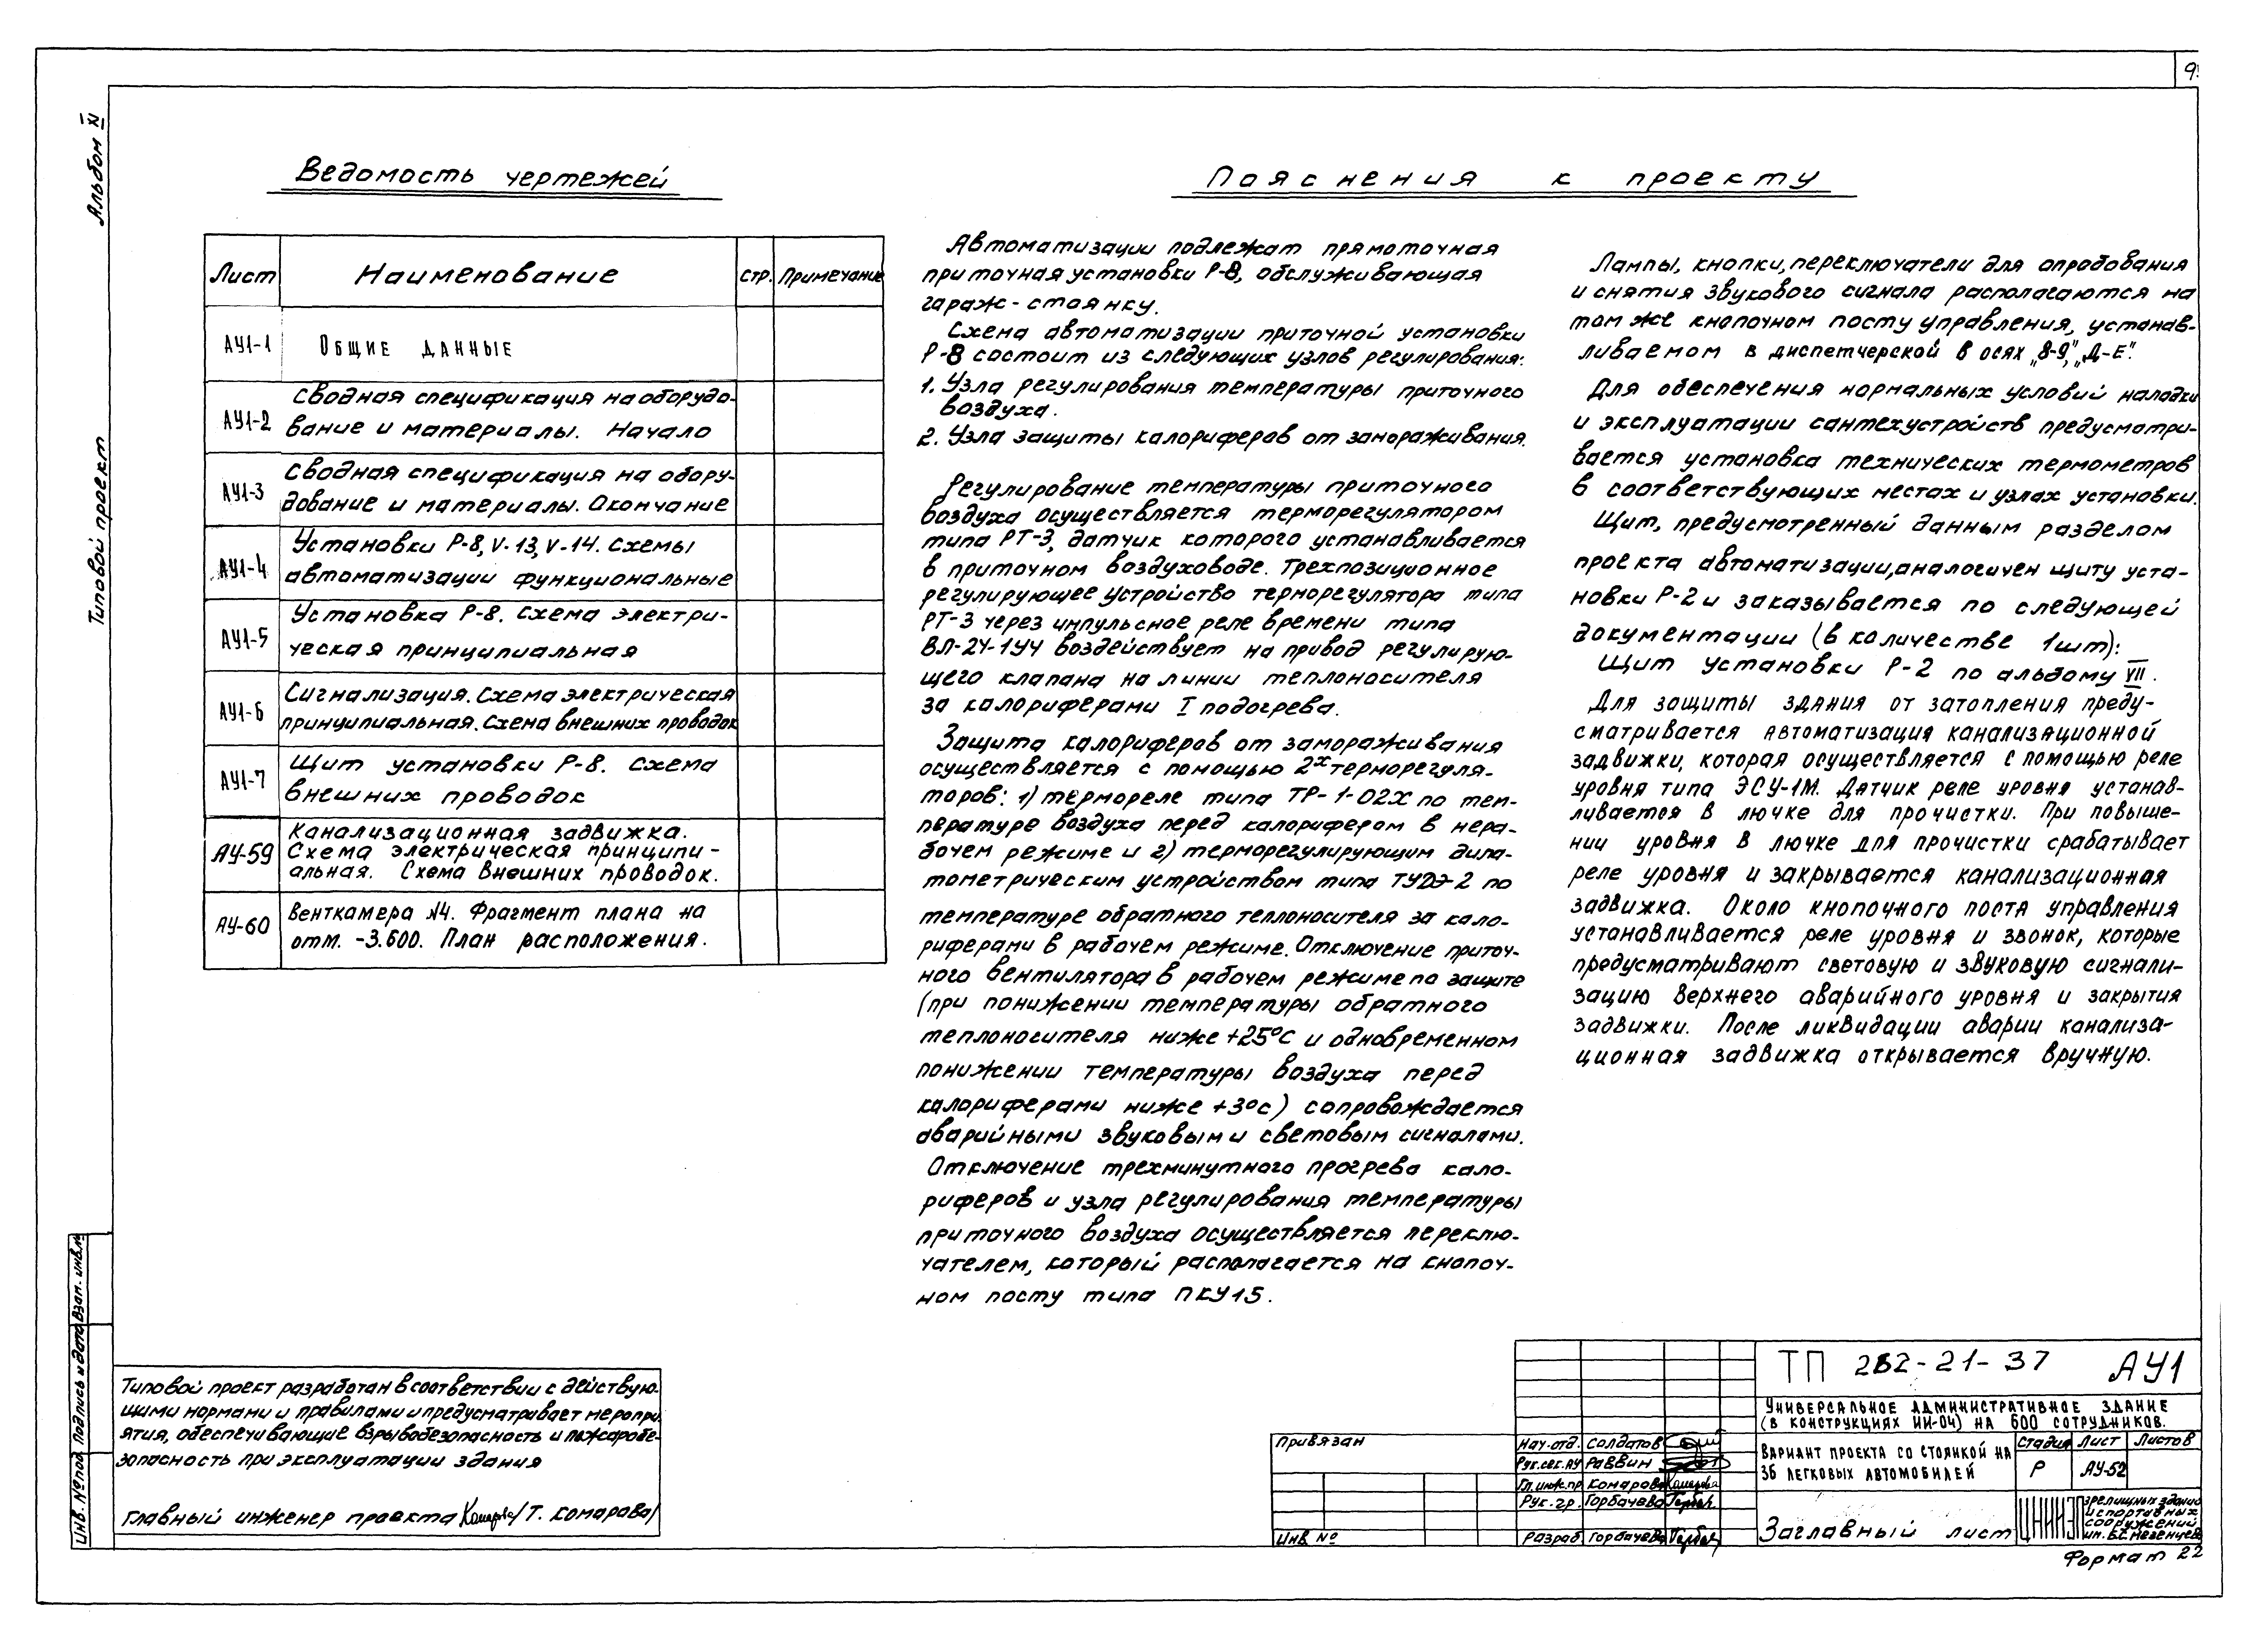 9
Альбом XI
Типовой проект
Ведомость чертежей
Лист Наименование стр. Примечание
АУ1-1 Общие данные
АУ1-2 Сводная спецификация на оборудо-
вание и материалы. Начало
АУ1-3 Сводная спецификация на обору-
дование и материалы. Окончание
АУ1-4 Установки Р-8, V-13, V-14. Схемы
автоматизации функциональные
АУ1-5 Установка Р-8. Схема электри-
ческая принципиальная
АУ1-6 Сигнализация. Схема электрическая
принципиальная. Схема внешних проводок
АУ1-7 Щит установки Р-8. Схема
внешних проводок
АУ-59 Канализационная задвижка.
Схема электрическая принципи-
альная. Схема внешних проводок.
АУ-60 Венткамера №4. Фрагмент плана на
отм. -3.600. План расположения.
Пояснения к проекту
Автоматизации подлежат прямоточная
приточная установки Р-8, обслуживающая
гараж-стоянку.
Схема автоматизации приточной установки
Р-8 состоит из следующих узлов регулирования:
1. Узла регулирования температуры приточного
воздуха.
2. Узла защиты калориферов от замораживания.
Регулирование температуры приточного
воздуха осуществляется терморегулятором
типа РТ-3, датчик которого устанавливается
в приточном воздуховоде. Трехпозиционное
регулирующее устройство терморегулятора типа
РТ-3 через импульсное реле времени типа
ВЛ-24-1У4 воздействует на привод регулирую-
щего клапана на линии теплоносителя
за калориферами I подогрева.
Защита калориферов от замораживания
осуществляется с помощью 2х терморегуля-
торов: 1) термореле типа ТР-1-02Х по тем-
пературе воздуха перед калорифером в нера-
бочем режиме и 2) терморегулирующим дила-
тометрическим устройством типа ТУДЭ-2 по
температуре обратного теплоносителя за кало-
риферами в рабочем режиме. Отключение приточ-
ного вентилятора в рабочем режиме по защите
(при понижении температуры обратного
теплоносителя ниже +25°С и одновременном
понижении температуры воздуха перед
калориферами ниже +3°с) сопровождается
аварийными звуковым и световым сигналами.
Отключение трехминутного прогрева кало-
риферов и узла регулирования температуры
приточного воздуха осуществляется переклю-
чателем, который располагается на кнопоч-
ном посту типа ПКУ15.
Лампы, кнопки, переключатели для опробования
и снятия звукового сигнала располагаются на
том же кнопочном посту управления, устанав-
ливаемом в диспетчерской в осях „8-9", „Д-Е".
Для обеспечения нормальных условий наладки
и эксплуатации сантехустройств предусматри-
вается установка технических термометров
в соответствующих местах и узлах установки.
Щит, предусмотренный данным разделом
проекта автоматизации, аналогичен щиту уста-
новки Р-2 и заказывается по следующей
документации (в количестве 1шт):
Щит установки Р-2 по альбому VII.
Для защиты здания от затопления преду-
сматривается автоматизация канализационной
задвижки, которая осуществляется с помощью реле
уровня типа ЭСУ-1М. Датчик реле уровня устанав-
ливается в лючке для прочистки. При повыше-
нии уровня в лючке для прочистки срабатывает
реле уровня и закрывается канализационная
задвижка. Около кнопочного поста управления
устанавливается реле уровня и звонок, которые
предусматривают световую и звуковую сигнали-
зацию верхнего аварийного уровня и закрытия
задвижки. После ликвидации аварии канализа-
ционная задвижка открывается вручную.
Инв. №под. Подпись и дата Взам. инв.№
Типовой проект разработан в соответствии с действую-
щими нормами и правилами и предусматривает меропри-
ятия, обеспечивающие взрывобезопасность и пожаробе-
зопасность при эксплуатации здания
Главный инженер проекта /Т. Комарова/
Привязан
Инв №
Нач. отд. Солдатов
Рук. сек. АУ Раввин
Гл. инж. пр. Комарова
Рук. гр. Горбачева
Разраб. Горбачева
ТП 262-21-37 АУ1
Универсальное административное здание
(в конструкциях ИИ-04) на 600 сотрудников.
Вариант проекта со стоянкой на
36 легковых автомобилей
Стадия Лист Листов
Р АУ-52
Заглавный лист
ЦНИИЭП зрелищных зданий
и спортивных
сооружений
им. Б.С. Мезенцева
Формат 22